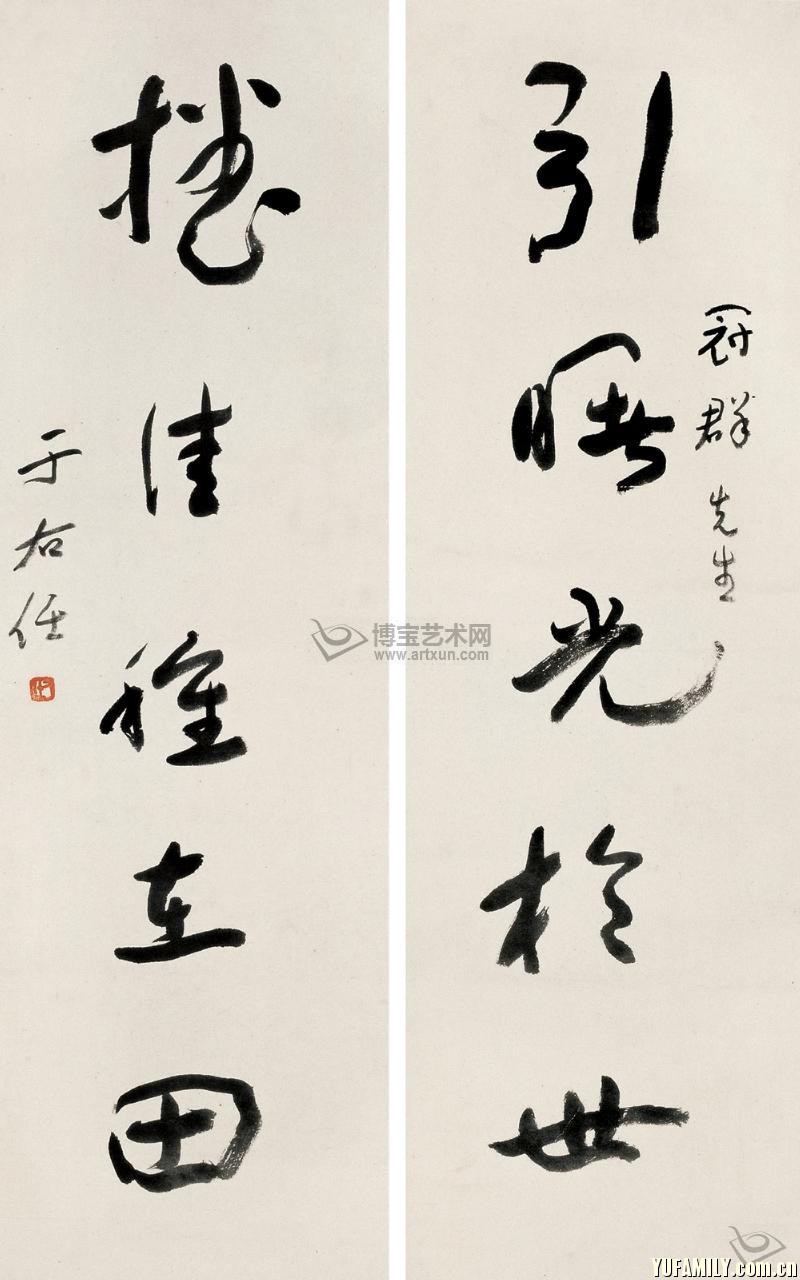 引曙光於世
冠群先生
播佳種在田
于右任
博宝艺术网
www.artxun.com
YUFAMILY.com.cn